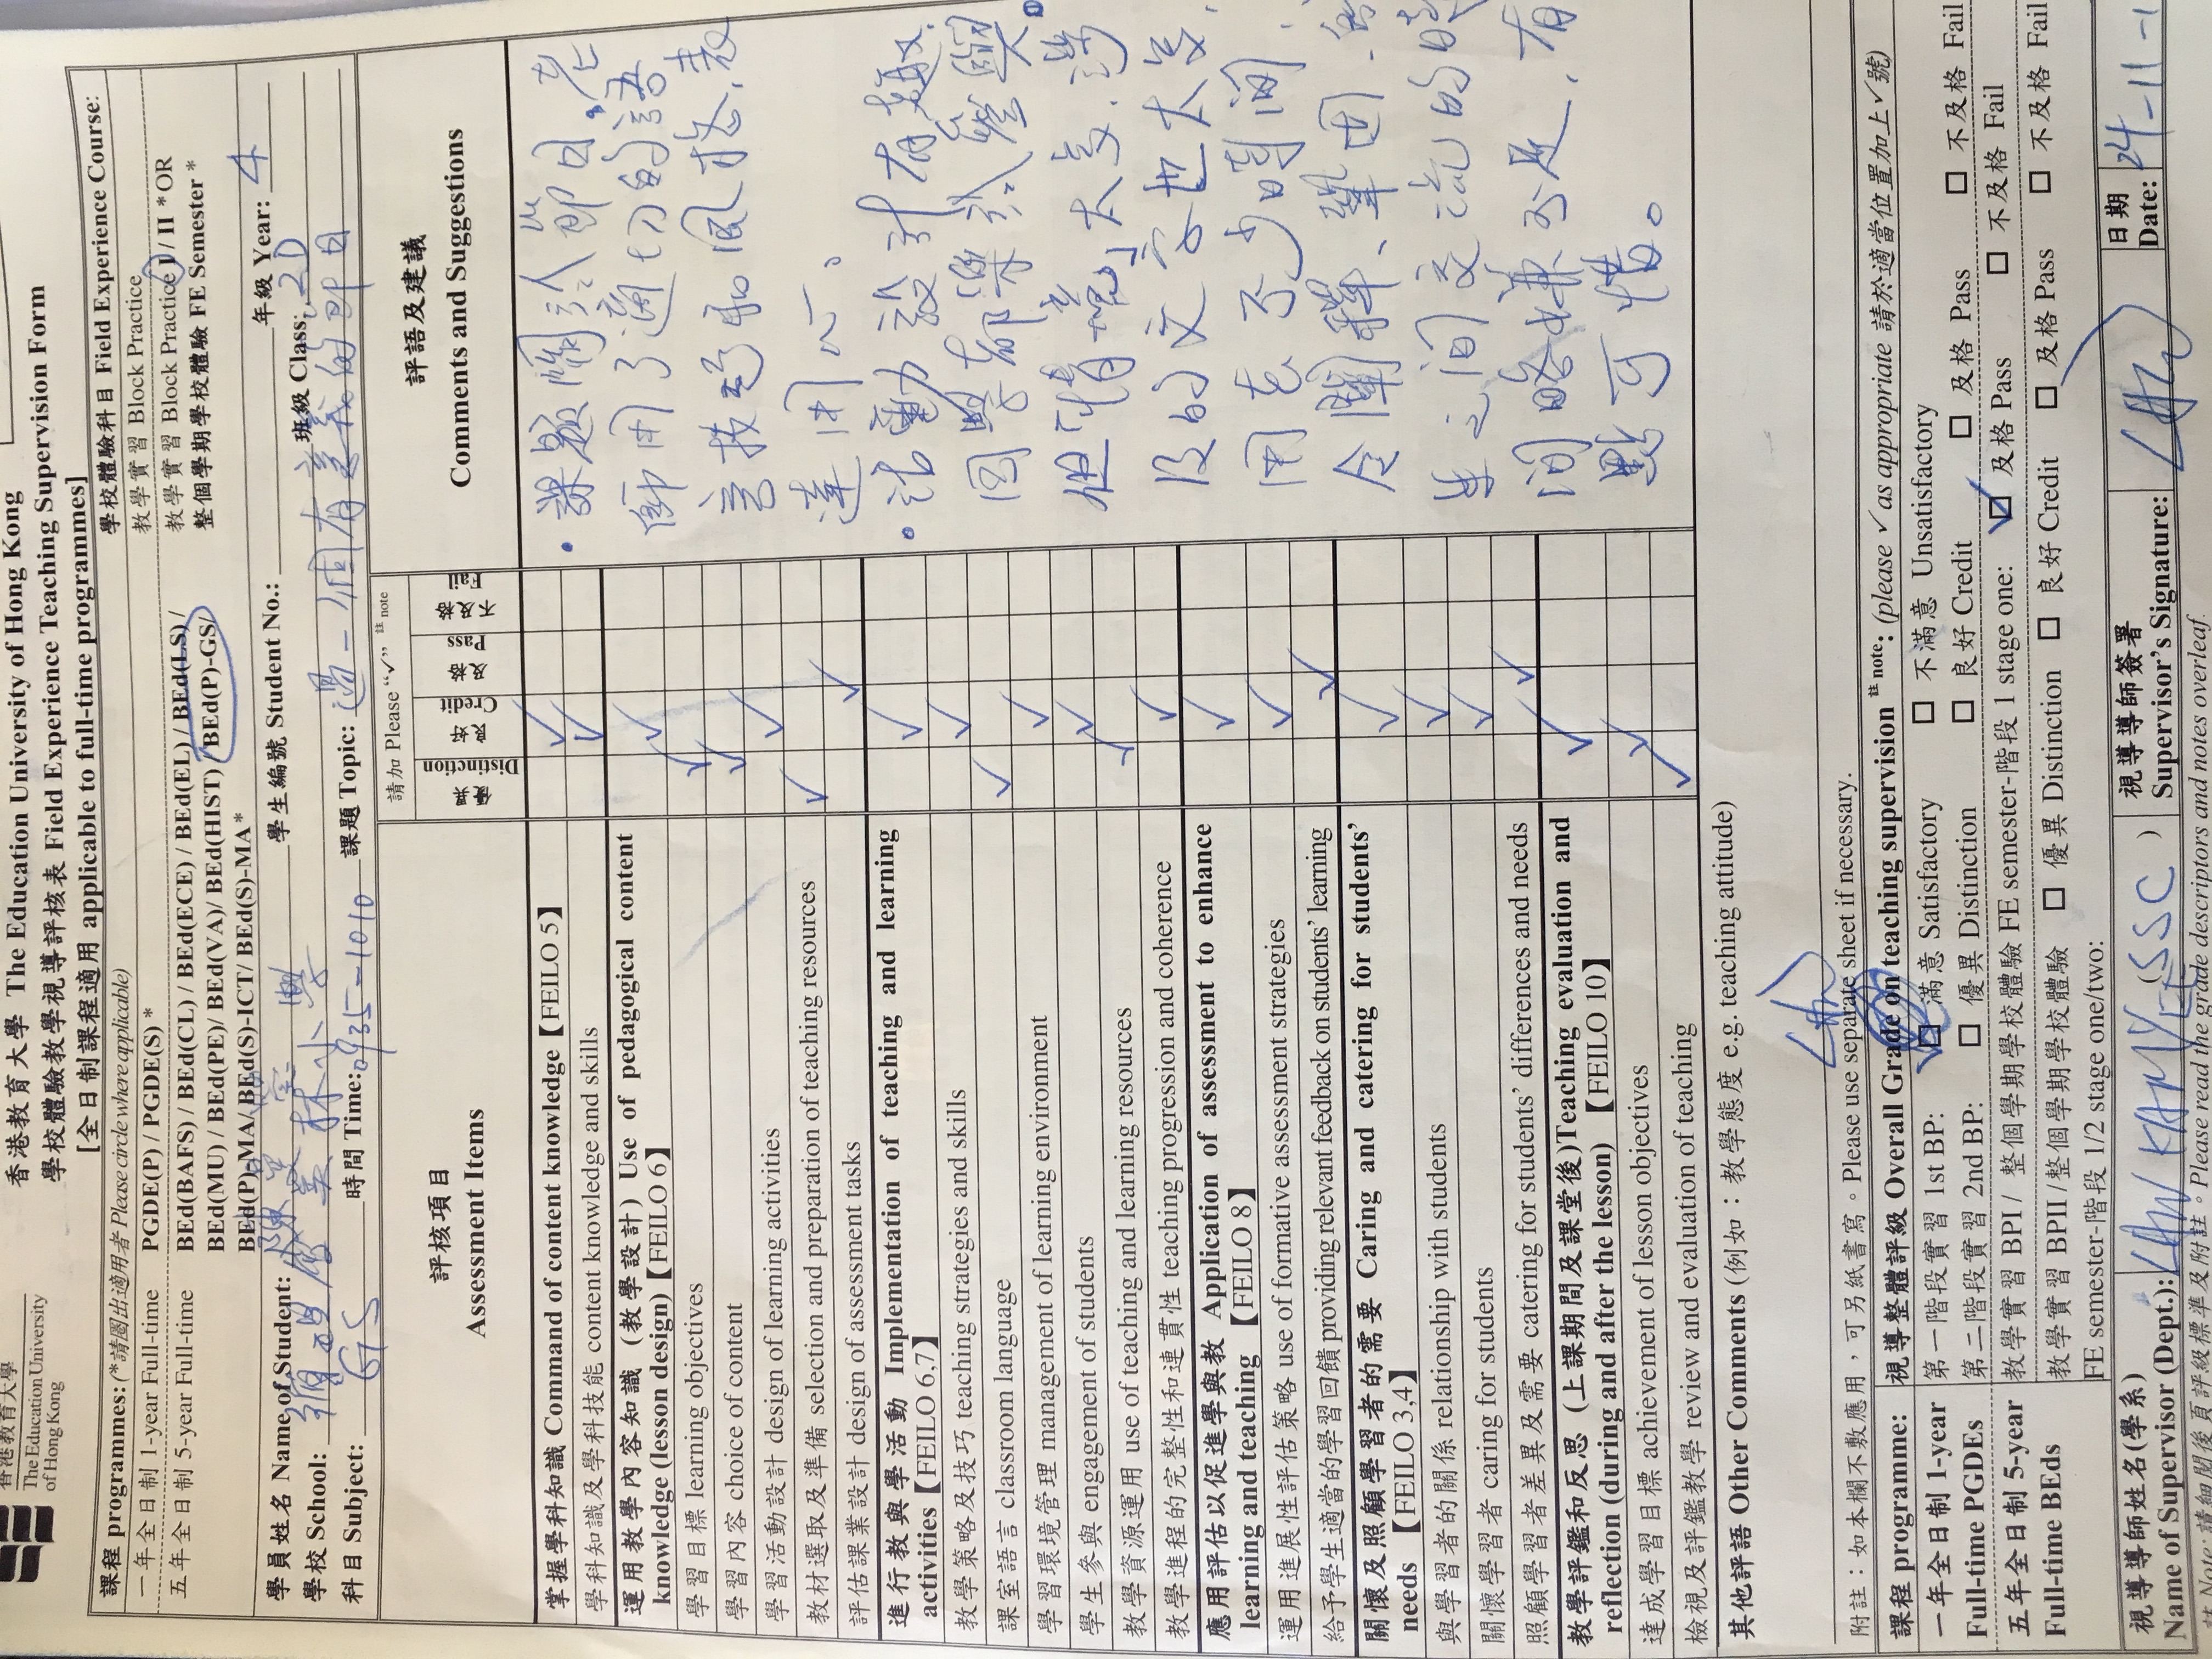 香港教育大學
The Education University
of Hong Kong
香港教育大學 The Education University of Hong Kong
學校體驗教學視導評核表 Field Experience Teaching Supervision Form
[全日制課程適用 applicable to full-time programmes]
課程 programmes: (*請圈出適用者 Please circle where applicable)
學校體驗科目 Field Experience Course:
一年全日制 1-year Full-time
PGDE(P) / PGDE(S) *
教學實習 Block Practice
五年全日制 5-year Full-time
BEd(BAFS) / BEd(CL) / BEd(ECE) / BEd(EL) / BEd(LS) /
BEd(MU) / BEd(PE)/ BEd(VA)/ BEd(HIST) /BEd(P)-GS/
BEd(P)-MA/ BEd(S)-ICT/ BEd(S)-MA*
教學實習 Block Practice I / II *OR
整個學期學校體驗 FE Semester *
學員姓名 Name of Student:
學生編號 Student No.:
年級 Year: 4
學校 School:
班級 Class: 2D
科目 Subject: GS
時間 Time: 0935-1010
課題 Topic: 過一個有意義的節日
評核項目
Assessment Items
請加 Please “✓” 註 note
優異 Distinction
良好 Credit
及格 Pass
不及格 Fail
評語及建議
Comments and Suggestions
掌握學科知識 Command of content knowledge【FEILO 5】
學科知識及學科技能 content knowledge and skills
運用教學內容知識 (教學設計) Use of pedagogical content
knowledge (lesson design)【FEILO 6】
學習目標 learning objectives
學習內容 choice of content
學習活動設計 design of learning activities
教材選取及準備 selection and preparation of teaching resources
評估課業設計 design of assessment tasks
進行教與學活動 Implementation of teaching and learning
activities【FEILO 6,7】
教學策略及技巧 teaching strategies and skills
課室語言 classroom language
學習環境管理 management of learning environment
學生參與 engagement of students
教學資源運用 use of teaching and learning resources
教學進程的完整性和連貫性 teaching progression and coherence
應用評估以促進學與教 Application of assessment to enhance
learning and teaching 【FEILO 8】
運用進展性評估策略 use of formative assessment strategies
給予學生適當的學習回饋 providing relevant feedback on students' learning
關懷及照顧學習者的需要 Caring and catering for students'
needs 【FEILO 3,4】
與學習者的關係 relationship with students
關懷學習者 caring for students
照顧學習者差異及需要 catering for students' differences and needs
教學評鑑和反思 (上課期間及課堂後)Teaching evaluation and
reflection (during and after the lesson) 【FEILO 10】
達成學習目標 achievement of lesson objectives
檢視及評鑑教學 review and evaluation of teaching
• 課題關於節日,老
師用了適切的語
言技巧和風格,教
達用心。
• 活動設計有趣,
同學都樂於參與。
但「情境」太多,涉
及的文字也太多,
用去不少時間,
令闡釋、鞏固、
生之間交流的時
間略嫌不足,有
點可惜。
其他評語 Other Comments (例如:教學態度 e.g. teaching attitude)
附註:如本欄不敷應用,可另紙書寫。Please use separate sheet if necessary.
課程 programme:
視導整體評級 Overall Grade on teaching supervision 註 note: (please ✓ as appropriate 請於適當位置加上✓號)
一年全日制 1-year
Full-time PGDEs
第一階段實習 1st BP:
☑ 滿意 Satisfactory
□ 不滿意 Unsatisfactory
第二階段實習 2nd BP:
□ 優異 Distinction
□ 良好 Credit
□ 及格 Pass
□ 不及格 Fail
五年全日制 5-year
Full-time BEds
教學實習 BPI / 整個學期學校體驗 FE semester-階段 1 stage one:
☑ 及格 Pass
□ 不及格 Fail
教學實習 BPII /整個學期學校體驗
FE semester-階段 1/2 stage one/two:
□ 優異 Distinction
□ 良好 Credit
□ 及格 Pass
□ 不及格 Fail
視導導師姓名(學系)
Name of Supervisor (Dept.):
LAW KAM YEE (SSC)
視導導師簽署
Supervisor's Signature:
日期
Date:
24-11-1
註 Note: 請細閱後頁評級標準及附註。Please read the grade descriptors and notes overleaf